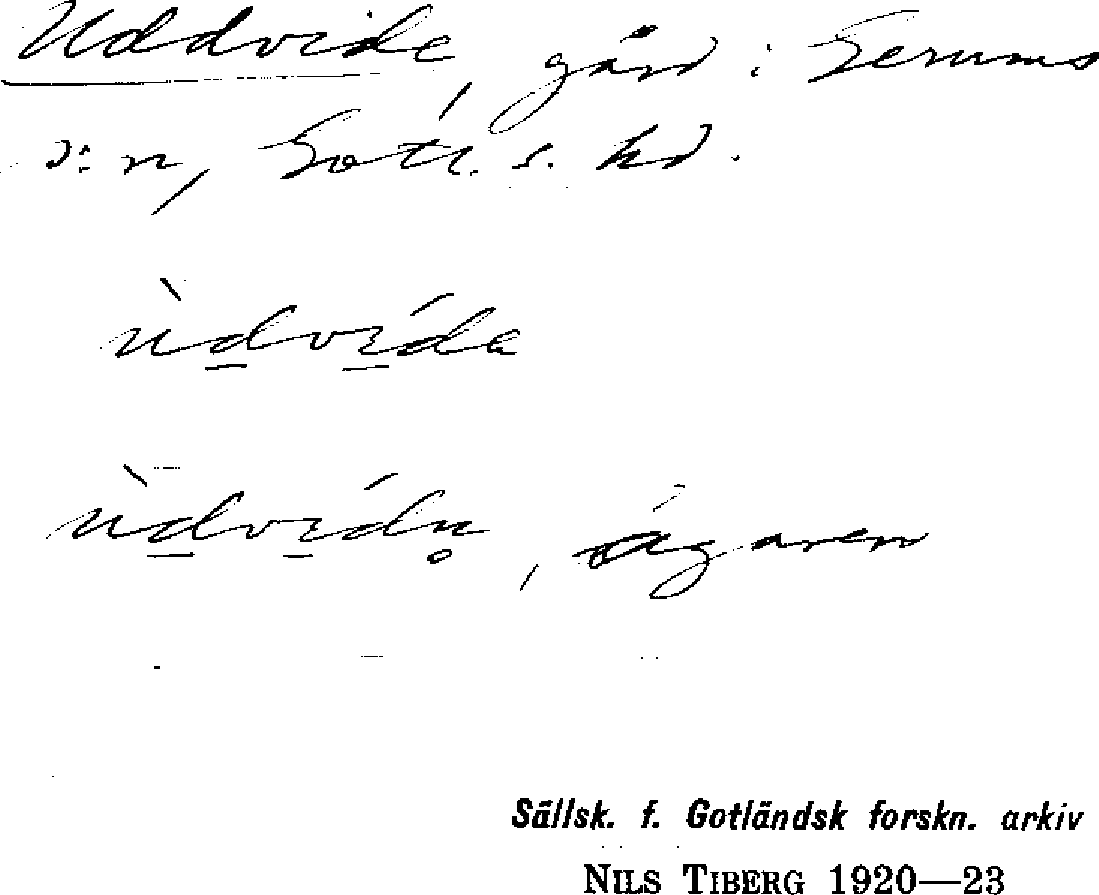 Uddvide, gård i Gerums
s:n, Gotl. s. hd.
ùd̲ví̲da
ùd̲ví̲dn̥, ägaren
Sällsk. f. Gotländsk forskn. arkiv
NILS TIBERG 1920—23